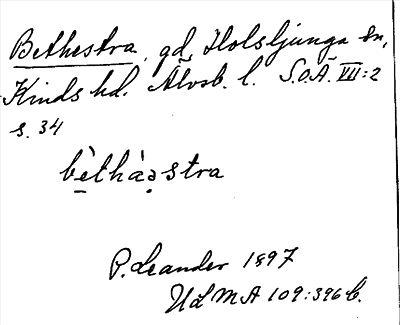 Bethestra, gd, Holsljunga sn,
Kinds hd. Älvsb. l. S.O.Ä. VII:2
s. 34
bèthàəstra
P. Leander 1897
Ud M A 109:396 b.